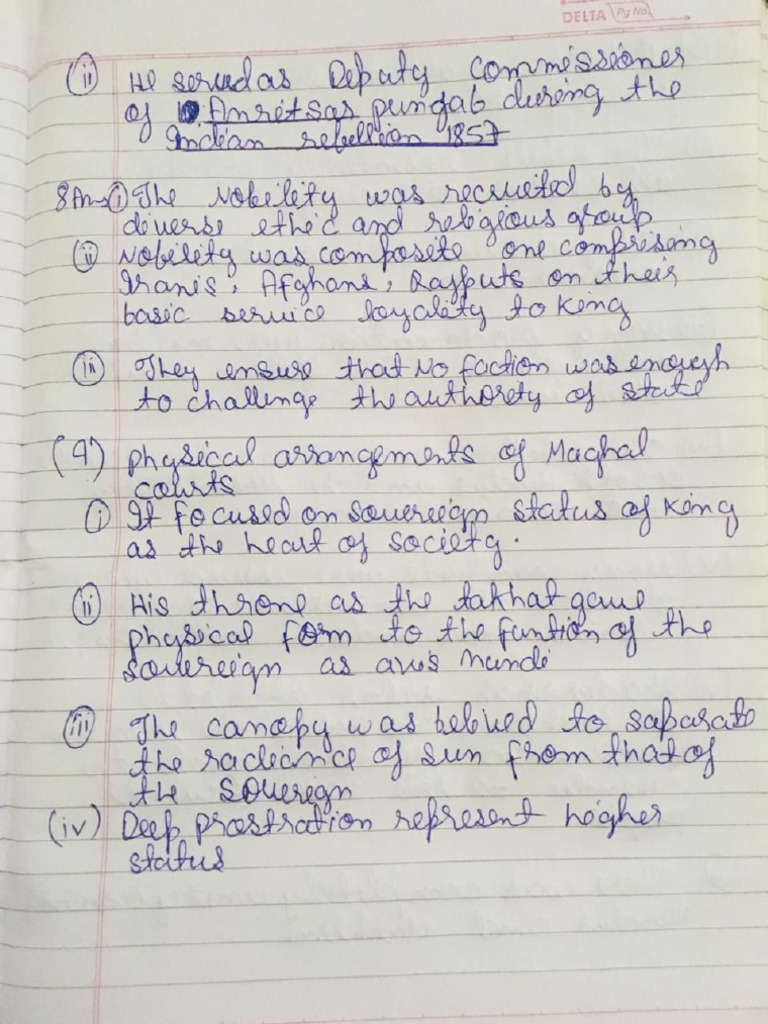 DELTA Pg No.
(ii) He served as Deputy Commissioner
of Amritsar punjab during the
Indian rebellion 1857
8 Ans (i) The Nobility was recruited by
diverse ethic and religious group
(ii) Nobility was composite one comprising
Iranis, Afghans, Rajputs on their
basic service loyality to King
(iii) They ensure that No faction was enough
to challenge the authority of state
(9) physical arrangements of Maghal
courts
(i) It focused on sovereign status of King
as the heart of society.
(ii) His throne as the takhat gave
physical form to the funtion of the
sovereign as axis Mundi
(iii) The canopy was belived to saparate
the radiance of sun from that of
the sovereign
(iv) Deep prostration represent higher
status